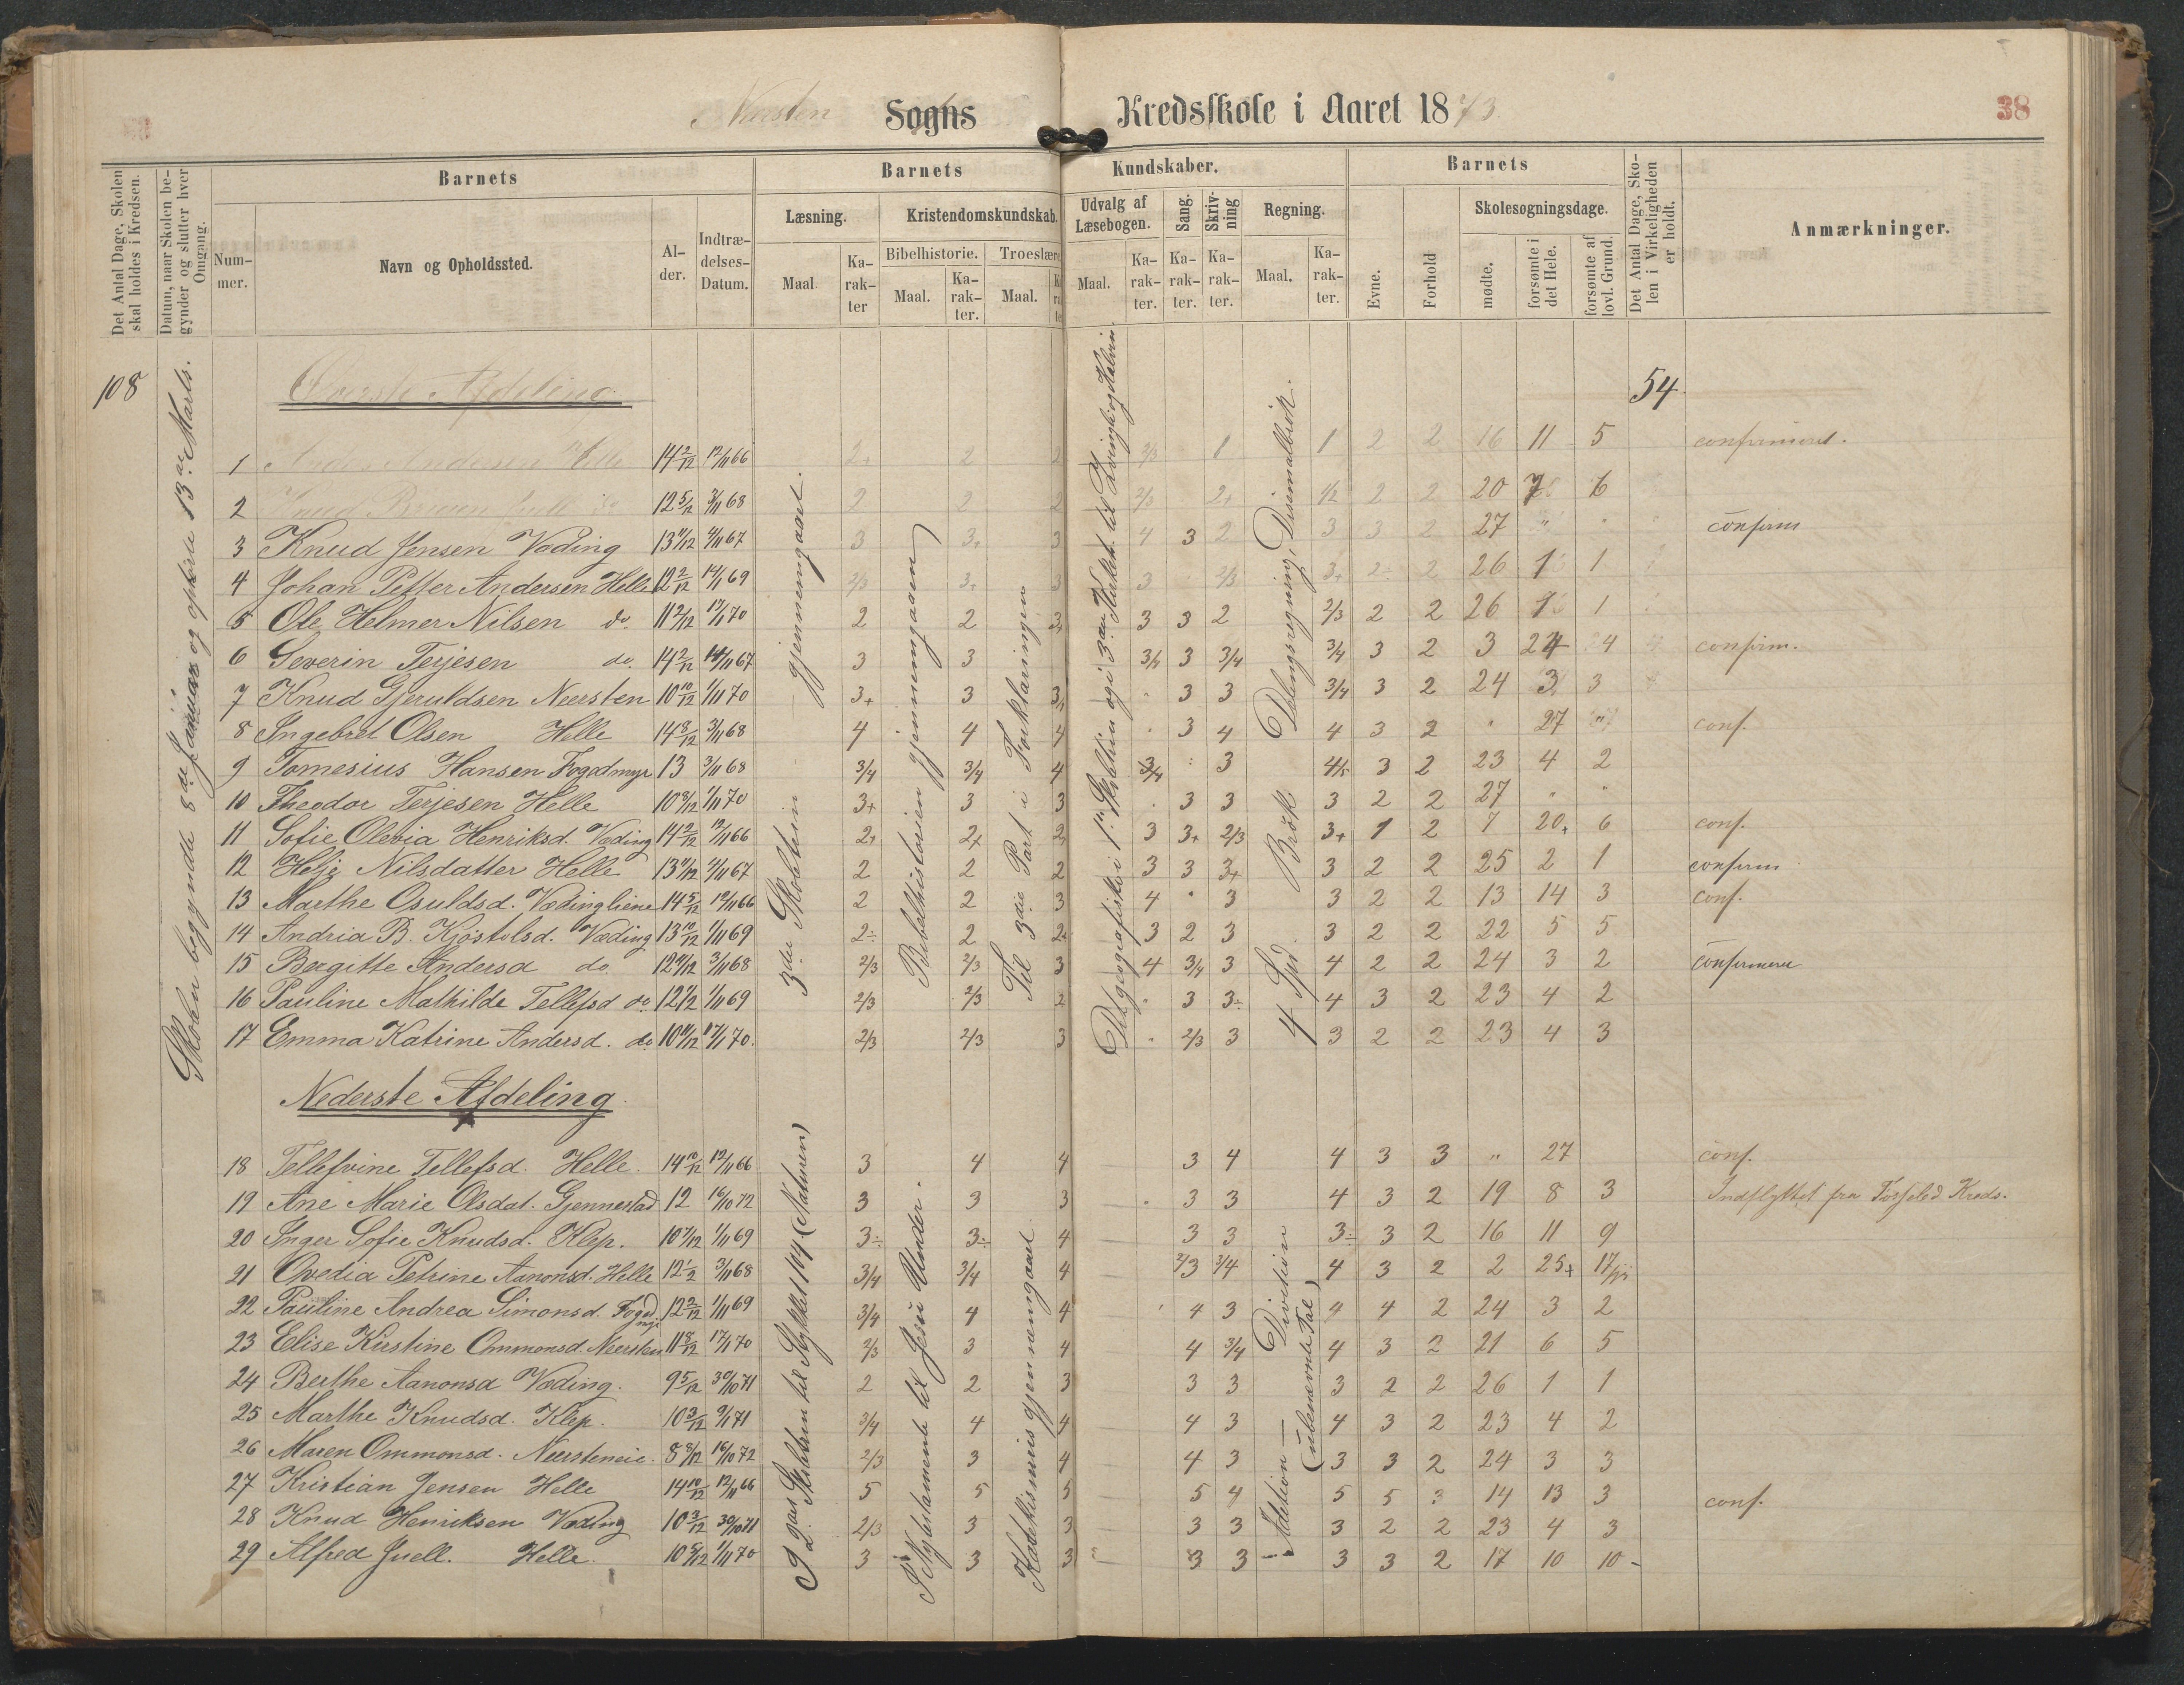 Neersten Sogns Kredsskole i Aaret 1873
38
Det Antal Dage, Skolen skal holdes i Kredsen.
Datum, naar Skolen begynder og slutter hver Omgang.
Barnets
Nummer.
Navn og Opholdssted.
Alder.
Indtrædelses-Datum.
Barnets Kundskaber.
Læsning.
Maal
Karakter
Kristendomskundskab.
Bibelhistorie.
Maal.
Karakter.
Troeslære
Maal.
Udvalg af Læsebogen.
Maal.
Karakter.
Sang.
Karakter.
Skrivning
Karakter.
Regning.
Maal.
Karakter.
Barnets
Evne.
Forhold
Skolesøgningsdage.
mødte.
forsømte i det Hele.
forsømte af lovl. Grund.
Det Antal Dage, Skolen i Virkeligheden er holdt.
Anmærkninger.
108
Skolen begyndte 8de Januar og ophørte 13de Marts.
54
Øverste Afdeling
3die Skoletrin gjennemgaaet.
Bibelhistorien gjennemgaaen
Til 3die Part i Forklaringen
Det geografiske i 1ste Skoletrin og i 3die Kirkeh. til Zvingli og Kalvin.
4 Spd. Brøk Delingsregning, Desimalbrøk.
1 Anders Andersen Helle 14 2/12 12/11 66 2+ 2 2 2/3 1 1 2 2 16 11 5 confirmeret.
2 Knud 12 5/12 3/11 68 2 2 2 2/3 2+ 1/2 2 2 20 7 6
3 Knud Jensen Væding 13 11/12 4/11 67 3 3+ 3 4 3 2 3 3 2 27 " confirm
4 Johan Petter Andersen Helle 12 2/12 14/1 69 2/3 3+ 3 3 2/3 3+ 2 2 26 1 1
5 Ole Helmer Nilsen do. 11 2/12 17/1 70 2 2 3+ 3 3 2 2/3 2 2 26 1 1
6 Severin Terjesen do. 14 2/12 14/11 67 3 3 3/4 3 3/4 3/4 3 2 3 24 4 confirm.
7 Knud Gjeruldsen Neersten 10 10/12 1/11 70 3+ 3 3+ 3 3 3/4 3 2 24 3 3
8 Ingebret Olsen Helle 14 8/12 3/11 68 4 4 4 3 4 4 3 2 " 27 " conf.
9 Tomesius Hansen Fogdmyr 13 3/11 68 3/4 3/4 4 3/4 3 4/5 3 2 23 4 2
10 Theodor Terjesen Helle 10 8/12 1/11 70 3+ 3 3 3 3 3 2 2 27
11 Sofie Olevia Henriksd. Væding 14 2/12 12/11 66 2+ 2+ 2+ 3 3+ 2/3 3+ 1 2 7 20+ 6 conf.
12 Helje Nilsdatter Helle 13 11/12 4/11 67 2 2 2 3 3 3+ 3 2 2 25 2 1 confirm
13 Marthe Osuldsd. Vædingliene 14 5/12 12/11 66 2 2 3 4 3 3 2 2 13 14 3 conf.
14 Andria B. Kjøstolsd. Væding 13 10/12 1/11 69 2÷ 2 2+ 3 2 3 3 2 2 22 5 5
15 Bergitte Andersd do. 12 11/12 3/11 68 2/3 2/3 3 4 3/4 3 4 2 2 24 3 2 confirmeret
16 Pauline Mathilde Tellefsd do 12 1/2 1/11 69 2/3 2/3 2 3 3÷ 4 3 2 23 4 2
17 Emma Katrine Andersd. do 10 11/12 17/1 70. 2/3 2/3 3 2/3 3 3 2 2 23 4 3
Nederste Afdeling.
I 2den Skoletrin til Stykket 104 (Naturen)
I Nytestamente til Jesu Under.
Katekismus gjennemgaaet.
Adition — Division
(ubenævnte Tal)
18 Tellefvine Tellefsd. Helle. 14 10/12 12/11 66 3 4 4 3 4 4 3 3 " 27 conf.
19 Ane Marie Olsdat. Gjennestad 12 16/10 72 3 3 3 3 3 4 3 2 19 8 3 Indflyttet fra Kreds.
20 Inger Sofie Knudsd. Klep. 10 7/12 1/11 69 3÷ 3÷ 4 3 3 3÷ 3 2 16 11 9
21 Ovedia Petrine Aanonsd. Helle 12 1/2 3/11 68 3/4 3/4 4 2/3 3/4 4 3 2 2 25+ 17
22 Pauline Andrea Simonsd. Fogdmyr 12 2/12 1/11 69 3/4 4 4 4 3 4 4 2 24 3 2
23 Elise Kirstine Ommonsd. Neersten 11 8/12 17/1 70 2/3 3 4 4 3/4 4 3 2 21 6 5
24 Berthe Aanonsd Væding. 9 5/12 30/10 71 2 2 3 3 3 3 2 2 26 1 1
25 Marthe Knudsd. Klep. 10 3/12 9/1 71 3/4 4 4 4 3 4 3 2 23 4 2
26 Maren Ommonsd. Neersteneie. 8 8/12 16/10 72 2/3 3 4 4 3 3 3 2 24 3 3
27 Kristian Jensen Helle 14 10/12 12/11 66 5 5 5 5 4 5 5 3 14 13 3 conf.
28 Knud Henriksen Væding 10 3/12 30/10 71 2/3 3 3 3 3 3 2 2 23 4 3
29 Alfred Juell. Helle. 10 8/12 1/11 70 3 3 3 3 3 3 3 2 17 10 10